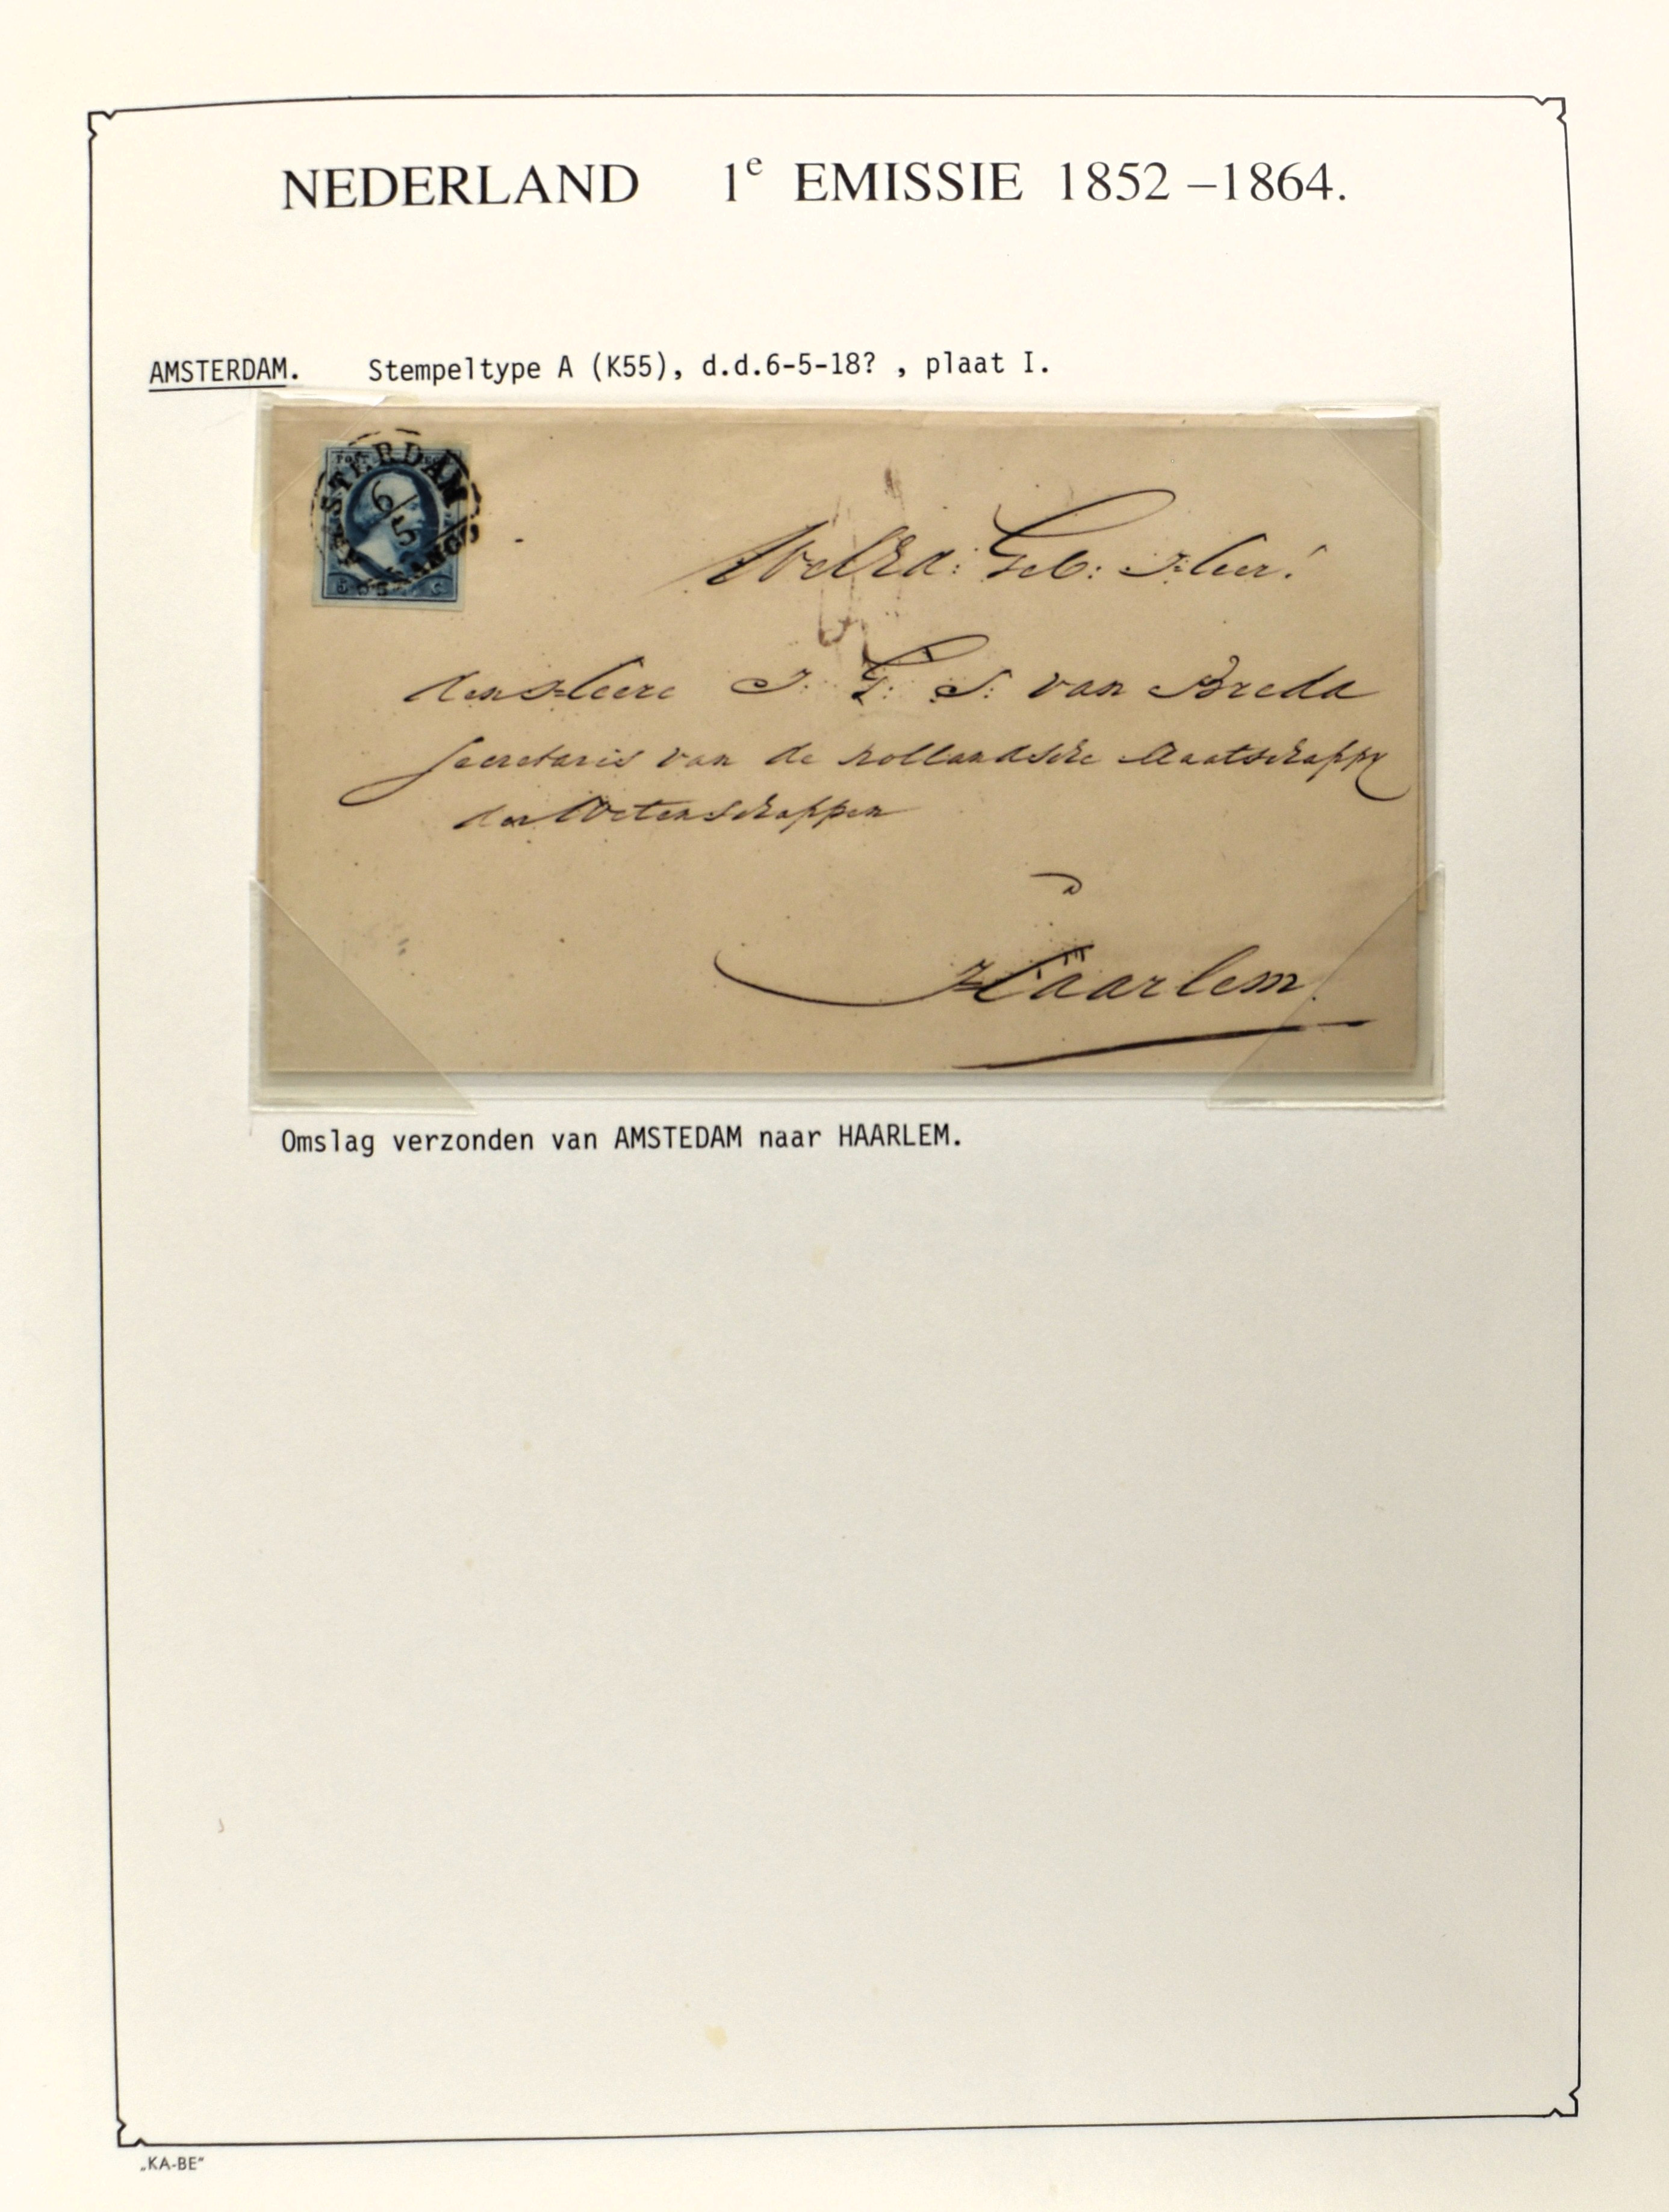 NEDERLAND 1e EMISSIE 1852 –1864.
AMSTERDAM. Stempeltype A (K55), d.d.6-5-18? , plaat I.
STERDAM
6/5
FRANCO
WelEd: Geb: Heer!
den Heere J. G. S. van Breda
Secretaris van de hollandsche Maatschappy
der Wetenschappen
Haarlem.
Omslag verzonden van AMSTEDAM naar HAARLEM.
„KA-BE“